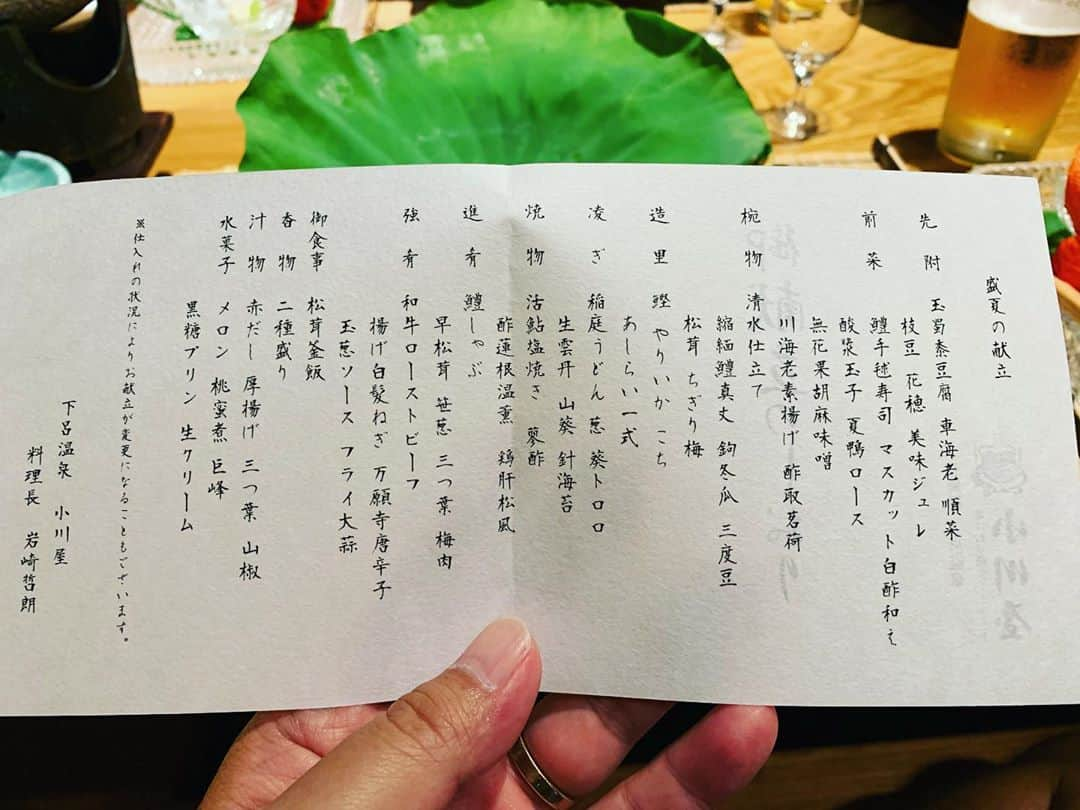 盛夏の献立
先附 玉蜀黍豆腐 車海老 順菜
枝豆 花穂 美味ジュレ
前菜 鱧手毬寿司 マスカット白酢和え
酸漿玉子 夏鴨ロース
無花果胡麻味噌
川海老素揚げ 酢取茗荷
椀物 清水仕立て
縮緬鱧真丈 鉤冬瓜 三度豆
松茸 ちぎり梅
造里 鰹 やりいか こち
あしらい一式
凌ぎ 稲庭うどん 葱 葵トロロ
生雲丹 山葵 針海苔
焼物 活鮎塩焼き 蓼酢
酢蓮根温燻 鶏肝松風
進肴 鱧しゃぶ
早松茸 笹葱 三つ葉 梅肉
強肴 和牛ローストビーフ
揚げ白髪ねぎ 万願寺唐辛子
玉葱ソース フライ大蒜
御食事 松茸釜飯
香物 二種盛り
汁物 赤だし 厚揚げ 三つ葉 山椒
水菓子 メロン 桃蜜煮 巨峰
黒糖プリン 生クリーム
※仕入れの状況によりお献立が変更になることもございます。
下呂温泉 小川屋
料理長 岩崎哲朗
小川屋